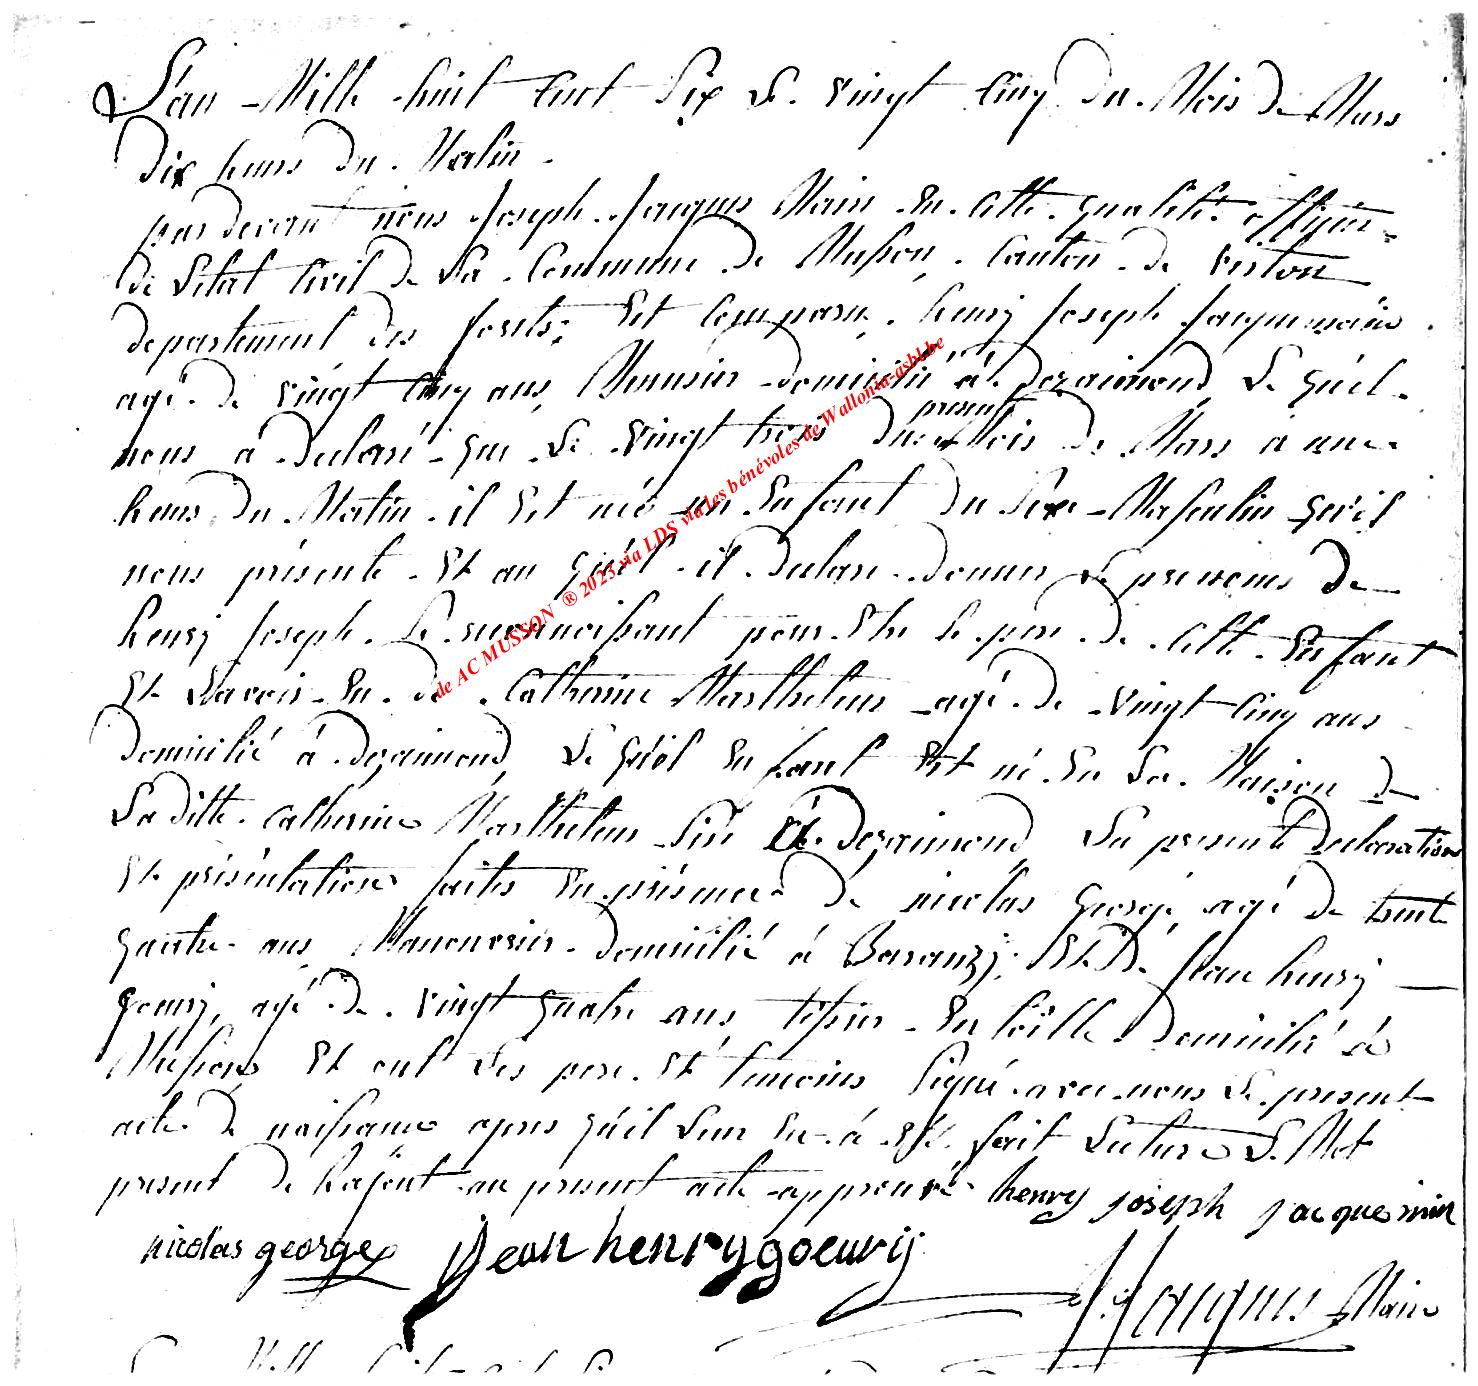 L'an Mille huit Cent Six Le vingt Cinq du Mois de Mars
dix heures du Matin.
par devant nous Joseph Jacques Maire En Cette qualité officier
de L'etat Civil de La Commune de Musson, Canton de Virton
departement des forêts; Est Comparu, henry Joseph Jacquemain
agé de vingt Cinq ans, Menusier domicilié à dezaimond, Le quél
nous à declaré que Le vingt trois du present Mois de Mars a une
heure du Matin il Est né un Enfant du Sexe Masculin qu'il
nous présente Et au quél il declare donner Le prenoms de
henry Joseph. Le reconnoissant pour Etre le pere de Cette Enfant
Et L'avoir Eu de Catherine Marthelus agé de vingt Cinq ans
domicilié à dezaimond, Le quél Enfant Est né En La Maison de
La ditte Catherine Marthelus Sise à dezaimond, La presente declaration
Et présentation faites En présence de nicolas George, agé de trente
quatre ans, Manouvrier domicilié à Baranzy; Et De Jean henry
goeury, agé de vingt quatre ans tissier En toille domicilié à
Musson, Et ont Les pere Et temoins Signé avec nous Le present
acte de naissance apres qu'il Leur En à Eté fait Lecture Le Mot
present de L'ajout au present acte approuvé henry joseph jacquemin
nicolas george jean henry goeury
J. Jacques Maire
de AC MUSSON ® 2023 via LDS via les bénévoles de Wallonia-asbl.be